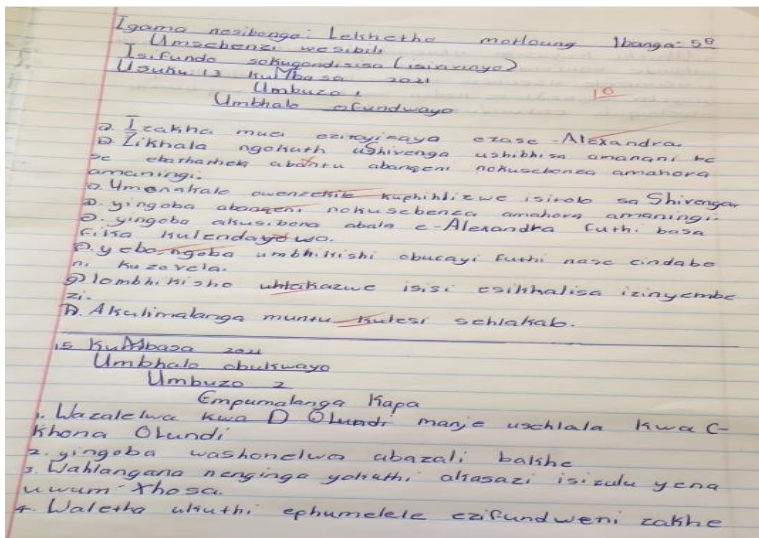 Igama nesibongo: Lekhetho motloung Ibanga: 5B
Umsebenzi wesibili
Isifundo sokuqondisisa (isivivinyo)
Usuku 13 kuMbasa 2021
Umbuzo 1
10
Umbhalo ofundwayo
a. Izakha muzi ezitoyizaya ezase-Alexandra.
b. Zikhala ngokuth uShivenga ushibhisa amanani be
be ekuthatheni abantu abangeni nokusebenza amahora
amaningi.
c. Umonakalo owenzekile kuphihlizwe isitolo sa Shivenga
d. yingoba abangeni nokusebenza amahora amaningi.
e. yingoba akusibona abala e-Alexandra futhi basa
fika kulendawo.
f. yebo, ngoba umbhikishi obucayi futhi nase cindabe
ni kuzovela.
g) lombhikisho uhlakazwe isisi esikhalisa izinyembe
zi.
h. Akulimalanga muntu kulesi sehlakab.
15 KuMbasa 2021
Umbhalo obukwayo
Umbuzo 2
Empumalanga Kapa
1. Wazalelwa kwa D Olundi manje usehlala kwa C-
Khona Olundi
2. yingoba washonelwa abazali bakhe
3. Wahlangana nenginga yokuthi akasazi isizulu yena
uwum Xhosa.
4. Waletha ukuthi ephumelele ezifundweni zakhe